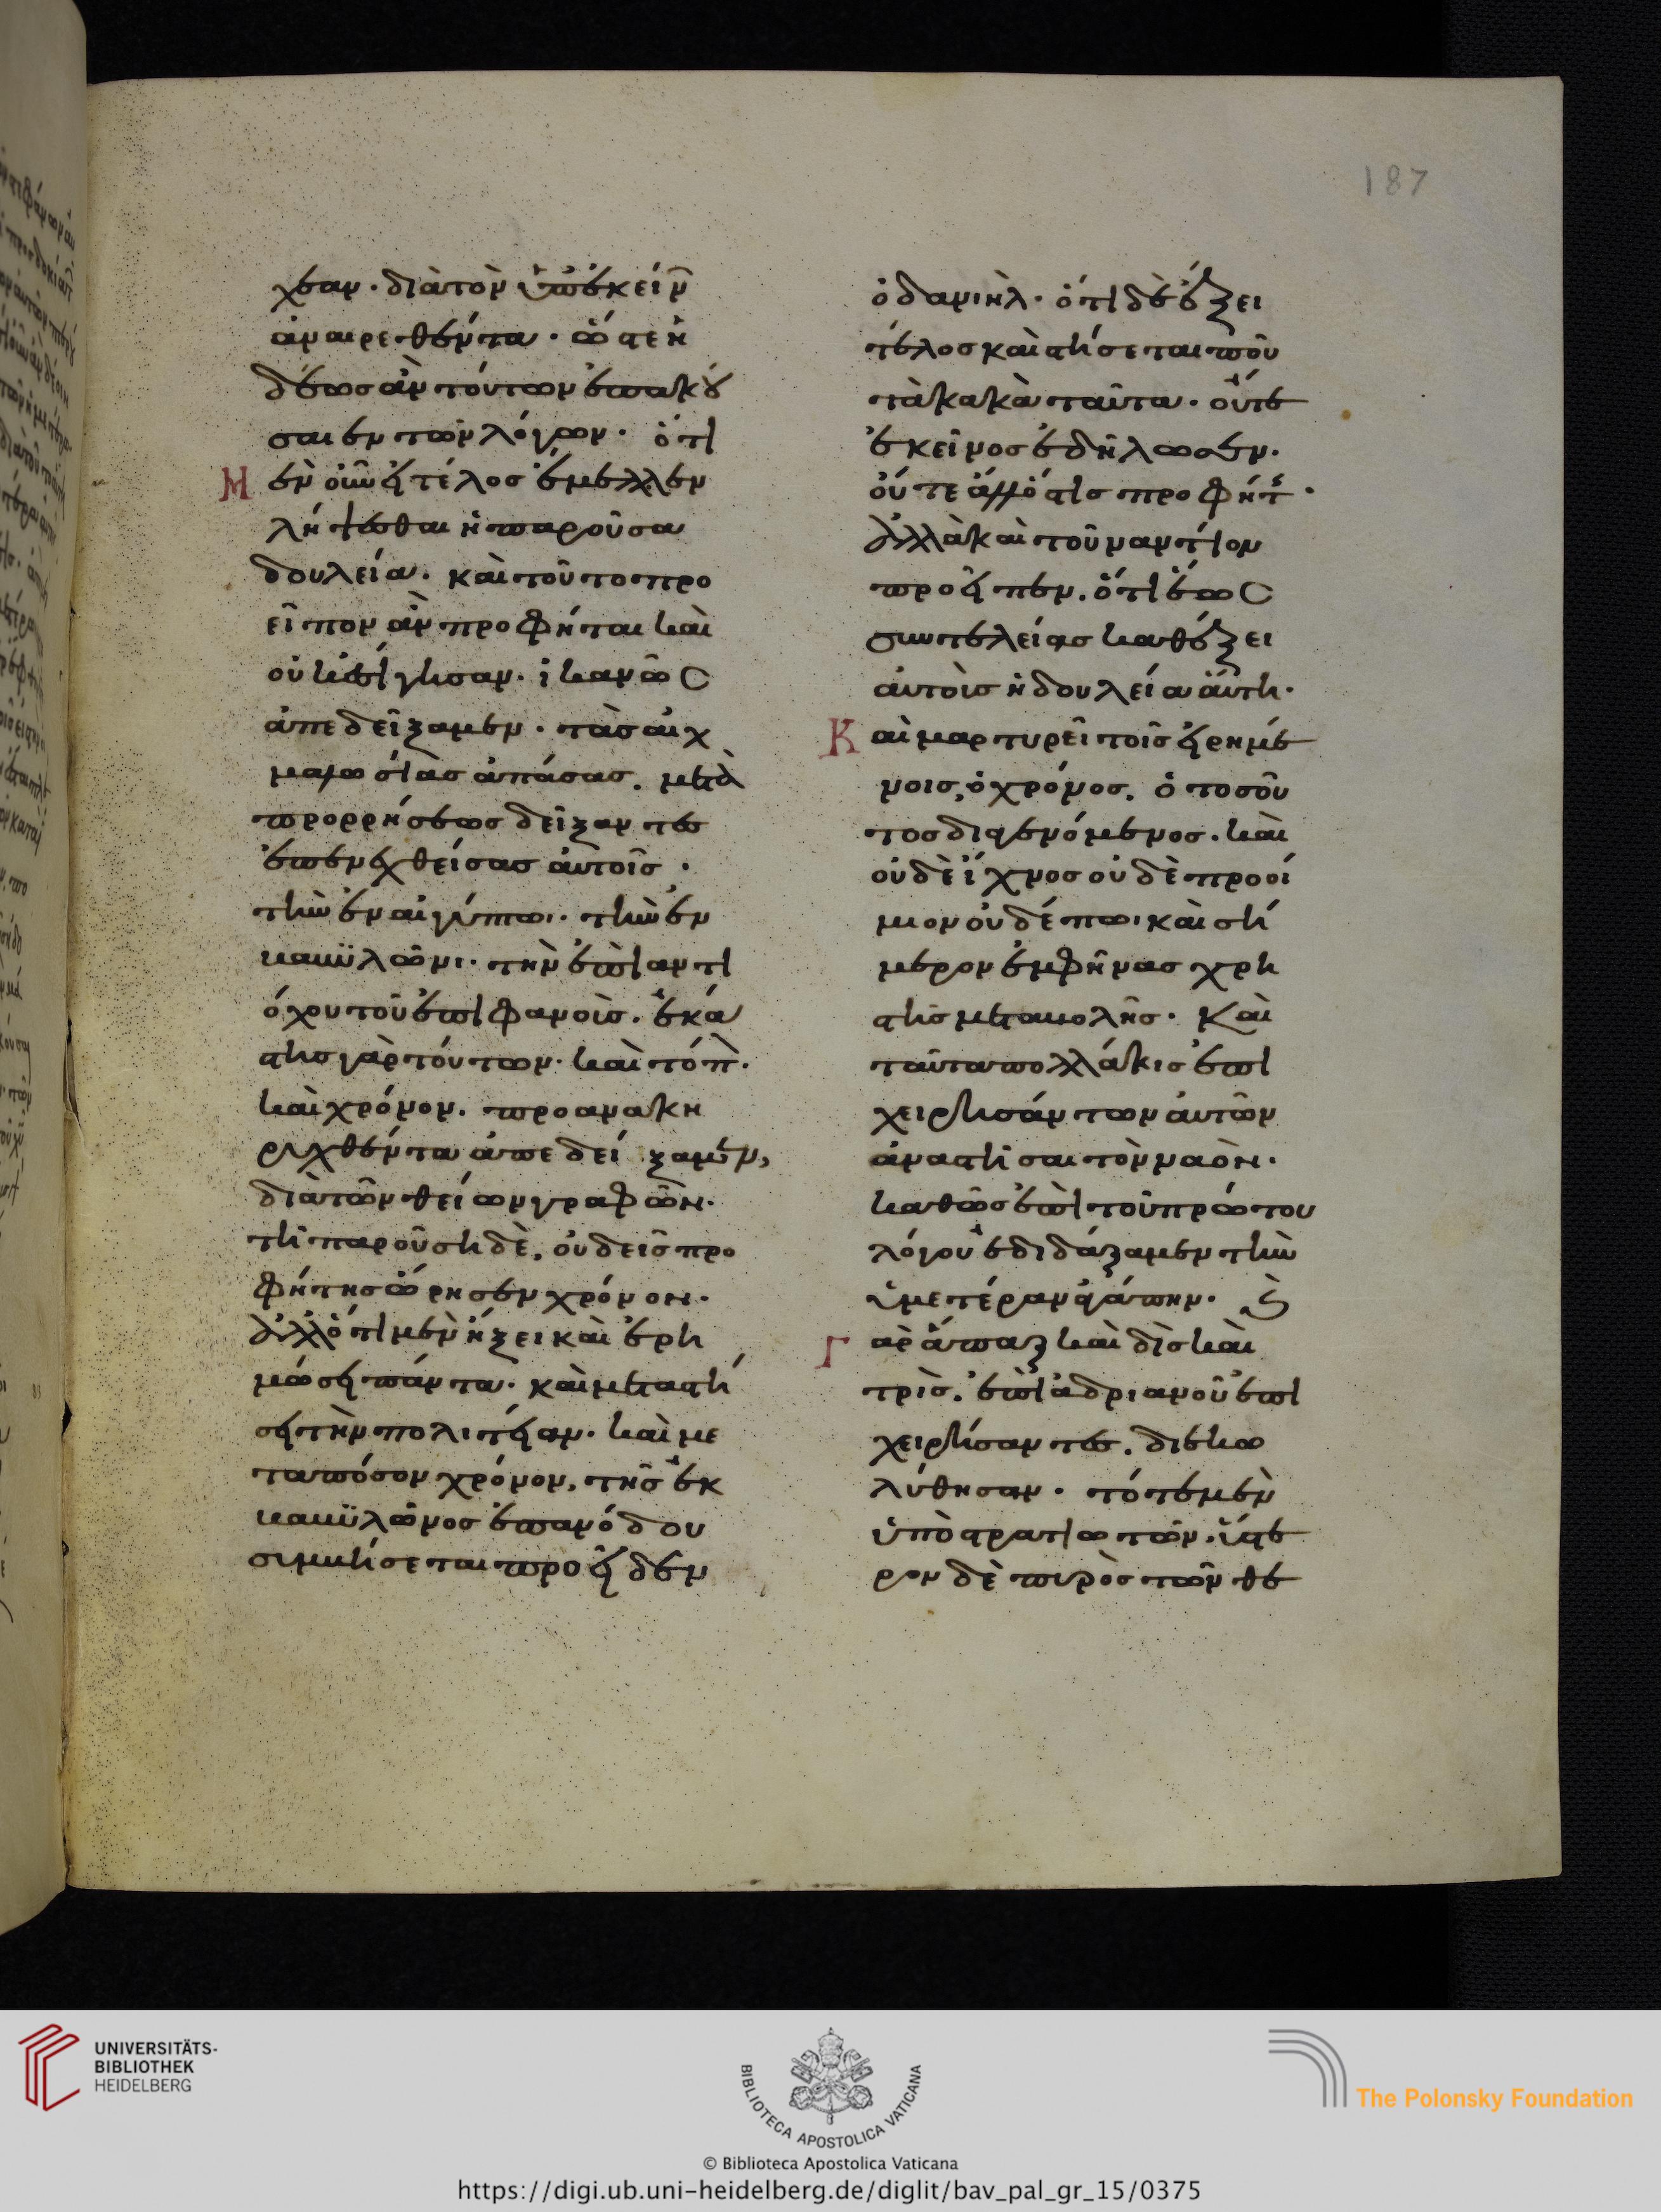 187
χεαν· διὰ τὸν ὑπ' ἐκείν
ἀναιρεθέντα· ὥστε ἡ
δέως ἂν τούτων ἐπακού
σαιεν τῶν λόγων· ὅτι
Μ ὲν οὖν εἰ τέλος ἔμελλεν
λήψεσθαι ἡ παροῦσα
δουλεία· καὶ τοῦτο προ
εῖπον ἂν προφῆται καὶ
οὐκ ἐσίγησαν· ἱκανῶς
ἀπεδείξαμεν· τὰς αἰχ
μαλωσίας ἁπάσας, μετὰ
προρρήσεως δείξαντες
ἐπενεχθείσας αὐτοῖς·
τὴν ἐν αἰγύπτωι· τὴν ἐν
βαβυλῶνι· τὴν ἐπὶ ἀντι
όχου τοῦ ἐπιφανοῦς· ἑκά
στης γὰρ τούτων· καὶ τόπ·
καὶ χρόνον· προανακη
ρυχθέντα ἀπεδείξαμεν,
διὰ τῶν θείων γραφῶν·
τῆ παρούση δὲ, οὐδεὶς προ
φήτης ὥρησεν χρόνον·
ἀλλ' ὅτι μὲν ἥξει καὶ ἐρη
μώσει πάντα· καὶ μεταστή
σει τὴν πολιτείαν· καὶ με
τὰ πόσον χρόνον, τῆς ἐκ
βαβυλῶνος ἐπανόδου
συμβήσεται προεῖδεν
ὁ δανιήλ· ὅτι δὲ ἕξει
τέλος καὶ στήσεται που
τὰ κακὰ ταῦτα· οὔτε
ἐκεῖνος ἐδήλωσεν·
οὔτε ἄλλός τις προφήτ·
ἀλλὰ καὶ τοὐναντίον
προεῖπεν· ὅτι ἕως
συντελείας καθέξει
αὐτοὺς ἡ δουλεία αὕτη·
Κ αὶ μαρτυρεῖ τοῖς εἰρημέ
νοις, ὁ χρόνος, ὁ τοσοῦ
τος διαγενόμενος· καὶ
οὐδὲ ἴχνος οὐδὲ προοί
μιον οὐδέπω· καὶ σή
μερον ἐμφήνας χρη
στῆς μεταβολῆς· Καὶ
ταῦτα πολλάκις ἐπι
χειρησάντων αὐτῶν
ἀναστῆσαι τὸν ναὸν·
καθὼς ἐπὶ τοῦ πρώτου
λόγου ἐδιδάξαμεν τὴν
ὑμετέραν ἀγάπην· Καὶ
Γ ὰρ ἅπαξ καὶ δὶς καὶ
τρὶς· ἐπὶ ἀδριανοῦ ἐπι
χειρήσαντες· διεκω
λύθησαν· τότε μὲν
ὑπὸ στρατιωτῶν· ὕστε
ρον δὲ πυρὸς τῶν θε
UNIVERSITÄTS-
BIBLIOTHEK
HEIDELBERG
BIBLIOTECA APOSTOLICA VATICANA
The Polonsky Foundation
© Biblioteca Apostolica Vaticana
https://digi.ub.uni-heidelberg.de/diglit/bav_pal_gr_15/0375